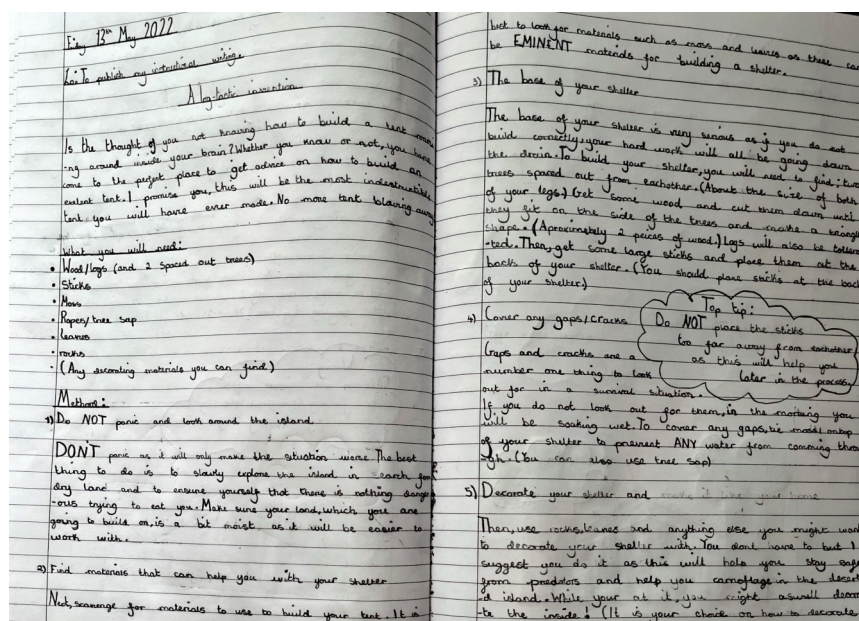 Friday 13th May 2022
L.o: To publish my instructional writing.
A log-tastic invention
Is the thought of you not knowing how to build a tent
-ng around inside your brain? Whether you know or not, you have
come to the perfect place to get advice on how to build an
exelent tent. I promise you, this will be the most indestructible
tent you will have ever made. No more tent blowing away
What you will need:
• Wood/logs (and 2 spaced out trees)
• Sticks
• Moss
• Ropes/tree sap
• leaves
• rocks
• (Any decorating materials you can find)
Method:
1) Do NOT panic and look around the island
DON'T panic as it will only make the situation worse. The best
thing to do is to slowly explore the island in search for
dry land and to ensure yourself that there is nothing danger
-ous trying to eat you. Make sure your land, which you are
going to build on, is a bit moist as it will be easier to
work with.
2) Find materials that can help you with your shelter
Next, scavenge for materials to use to build your tent. It is
best to look for materials such as moss and leaves as these can
be EMINENT materials for building a shelter.
3) The base of your shelter
The base of your shelter is very serious as if you do not
build correctly, your hard work will all be going down
the drain. To build your shelter, you will need to find; two
trees spaced out from eachother. (About the size of both
of your legs.) Get some wood and cut them down until
they fit on the side of the trees and make a triangle
shape. (Aproximately 2 peices of wood.) Logs will also be
-ted. Then, get some large sticks and place them at the
back of your shelter. (You should place sticks at the back
of your shelter.)
4) Cover any gaps/cracks
Top tip:
Do NOT place the sticks
too far away from eachother
as this will help you
later in the process.
Gaps and cracks are a
number one thing to look
out for in a survival situation.
If you do not look out for them, in the morning you
will be soaking wet. To cover any gaps, tie ontop
of your shelter to prevent ANY water from comming thro
-gh. (You can also use tree sap)
5) Decorate your shelter and make it like your home
Then, use rocks, leaves and anything else you might want
to decorate your shelter with. You dont have to but I
suggest you do it as this will help you stay safe
from predators and help you camoflage in the desert
-d island. While your at it, you might aswell decora
-te the inside! (It is your choice on how to decorate